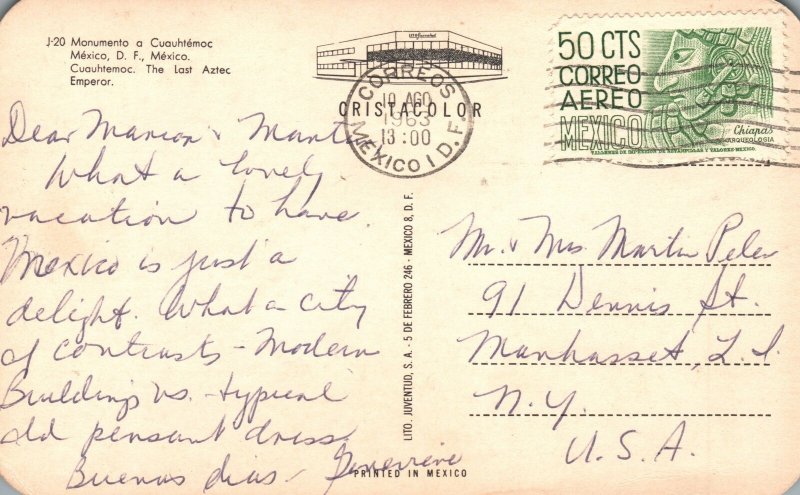 J-20 Monumento a Cuauhtémoc
México, D. F., México.
Cuauhtemoc. The Last Aztec
Emperor.
CRISTACOLOR
CORREOS
10 AGO
1963
13:00
MEXICO 1 D.F.
50 CTS
CORREO
AEREO
MEXICO
Chiapas
ARQUEOLOGIA
TALLERES DE IMPRESION DE ESTAMPILLAS Y VALORES-MEXICO.
Dear Marion & Martin
What a lovely
vacation to have.
Mexico is just a
delight. What a city
of contrasts - Modern
Buildings vs. - typical
old peasant dress.
Buenos dias - Genevieve
LITO. JUVENTUD, S.A. - 5 DE FEBRERO 246 - MEXICO 8, D. F.
Mr. & Mrs. Martin
91 Dennis St.
Manhasset, L.I.
N.Y.
U.S.A.
PRINTED IN MEXICO